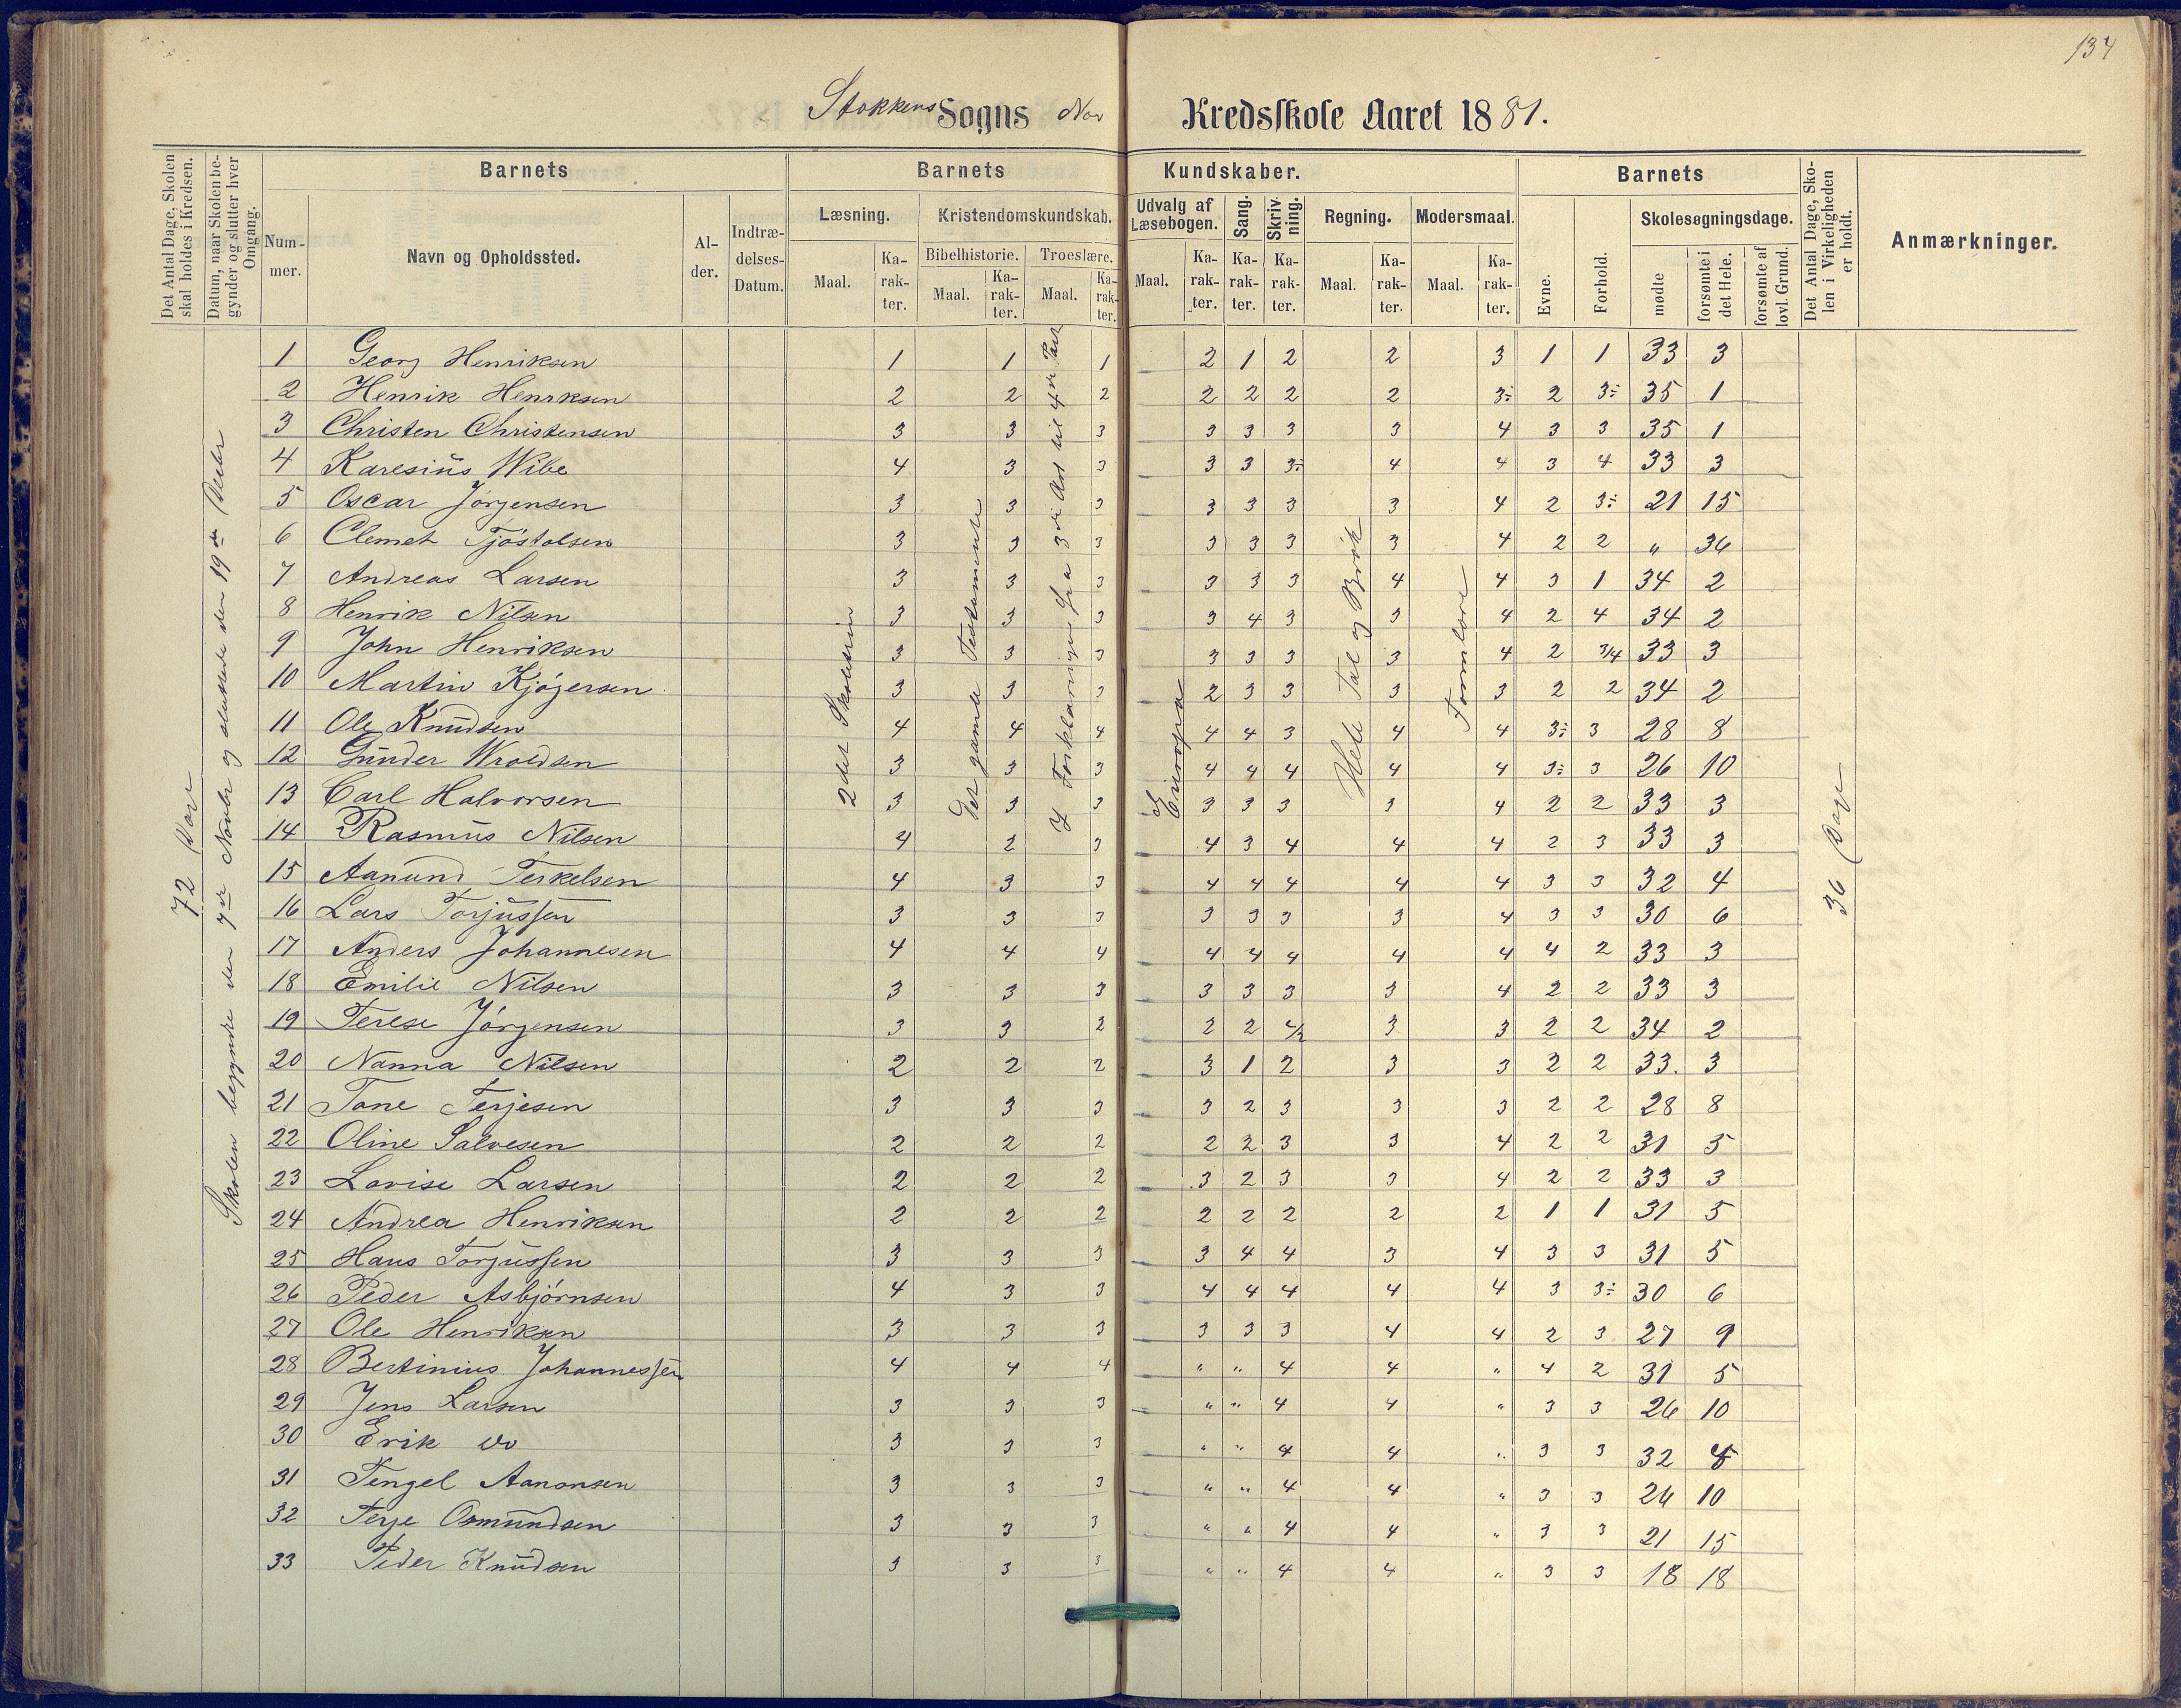 134
Stokkens Sogns Nor Kredsskole Aaret 1881.
Det Antal Dage, Skolen skal holdes i Kredsen.
Datum, naar Skolen begynder og slutter hver Omgang.
Barnets
Nummer.
Navn og Opholdssted.
Alder.
Indtrædelses-Datum.
Barnets Kundskaber.
Læsning.
Maal.
Karakter.
Kristendomskundskab.
Bibelhistorie.
Maal.
Karakter.
Troeslære.
Maal.
Karakter.
Udvalg af Læsebogen.
Maal.
Karakter.
Sang.
Karakter.
Skrivning.
Karakter.
Regning.
Maal.
Karakter.
Modersmaal.
Maal.
Karakter.
Barnets
Evne.
Forhold.
Skolesøgningsdage.
mødte
forsømte i det Hele.
forsømte af lovl. Grund.
Det Antal Dage, Skolen i Virkeligheden er holdt.
Anmærkninger.
72 Dage
Skolen begyndte den 7de Novbr og sluttede den 19de Decbr
2det Skoletrin
Det gamle Testamente
I Forklaringen fra 3die Art til 4de Part
Europa
Hele Tal og Brøk
Formlære
36 Dage
1 Georg Henriksen 1 1 1 2 1 2 2 3 1 1 33 3
2 Henrik Henrksen 2 2 2 2 2 2 2 3÷ 2 3÷ 35 1
3 Christen Christensen 3 3 3 3 3 3 3 4 3 3 35 1
4 Karesius Wibe 4 3 3 3 3 3÷ 4 4 3 4 33 3
5 Oscar Jørgensen 3 3 3 3 3 3 3 4 2 3÷ 21 15
6 Clemet Tjøstolsen 3 3 3 3 3 3 3 4 2 2 " 36
7 Andreas Larsen 3 3 3 3 3 3 4 4 3 1 34 2
8 Henrik Nilsen 3 3 3 3 4 3 3 4 2 4 34 2
9 John Henriksen 3 3 3 3 3 3 3 4 2 3/4 33 3
10 Martin Kjøgersen 3 3 3 2 3 3 3 3 2 2 34 2
11 Ole Knudsen 4 4 4 4 4 3 4 4 3÷ 3 28 8
12 Gunder Wroldsen 3 3 3 4 4 4 4 4 3÷ 3 26 10
13 Carl Halvorsen 3 3 3 3 3 3 3 4 2 2 33 3
14 Rasmus Nilsen 4 2 3 4 3 4 4 4 2 3 33 3
15 Aanund Terkelsen 4 3 3 4 4 4 4 4 3 3 32 4
16 Lars Torjussen 3 3 3 3 3 3 3 4 3 3 30 6
17 Anders Johannesen 4 4 4 4 4 4 4 4 4 2 33 3
18 Emilie Nilsen 3 3 3 3 3 3 3 4 2 2 33 3
19 Terese Jørgensen 3 3 2 2 2 2/2 3 3 2 2 34 2
20 Nanna Nilsen 2 2 2 3 1 2 3 3 2 2 33. 3
21 Tone Terjesen 3 3 3 3 2 3 3 3 2 2 28 8
22 Oline Salvesen 2 2 2 2 2 3 3 4 2 2 31 5
23 Lovise Larsen 2 2 2 3 2 3 3 4 2 2 33 3
24 Andrea Henriksen 2 2 2 2 2 2 2 2 1 1 31 5
25 Hans Torjussen 3 3 3 3 4 4 3 4 3 3 31 5
26 Peder Asbjørnsen 4 3 3 4 4 4 4 4 3 3÷ 30 6
27 Ole Henriksen 3 3 3 3 3 3 4 4 2 3 27 9
28 Bertinius Johannessen 4 4 4 " " 4 4 " 4 2 31 5
29 Jens Larsen 3 3 3 " " 4 4 " 3 3 26 10
30 Erik do 3 3 3 " " 4 4 " 3 3 32 4
31 Tengel Aanonsen 3 3 3 " " 4 4 " 3 3 26 10
32 Terje Osmundsen 3 3 3 " " 4 4 " 3 3 21 15
33 Peder Knudsen 3 3 3 " " 4 4 " 3 3 18 18